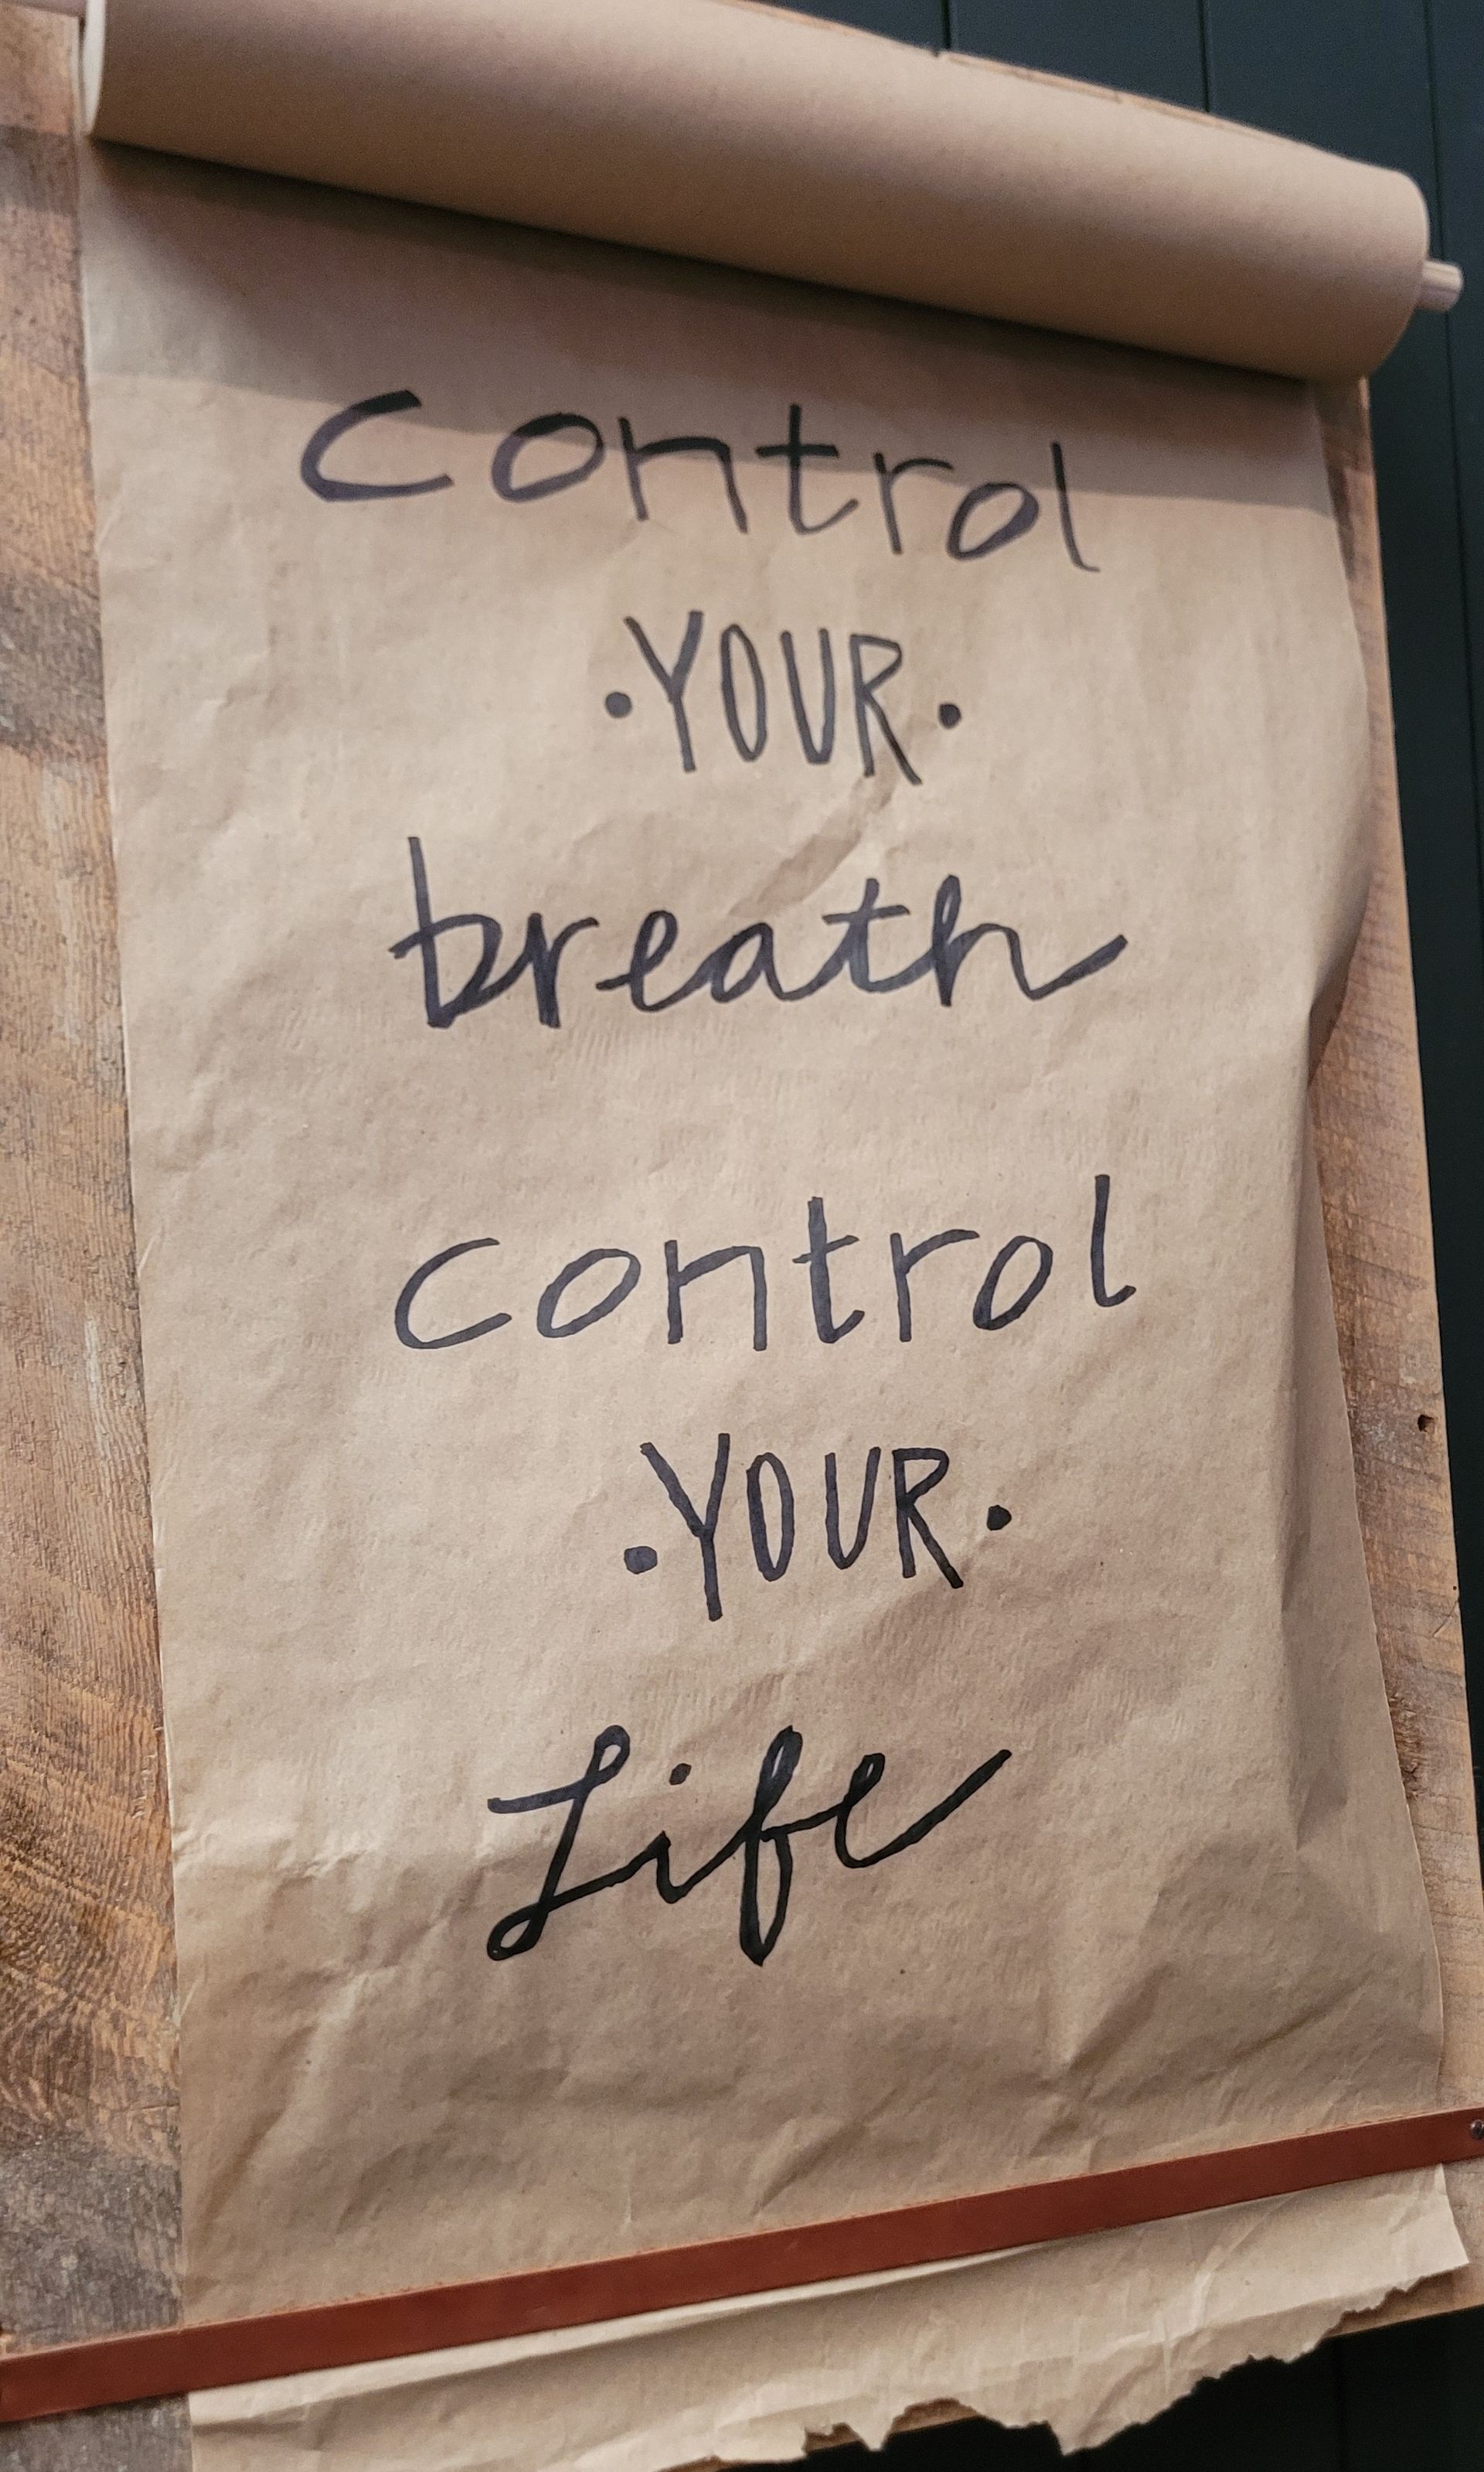 control
•YOUR•
breath
control
•YOUR•
Life